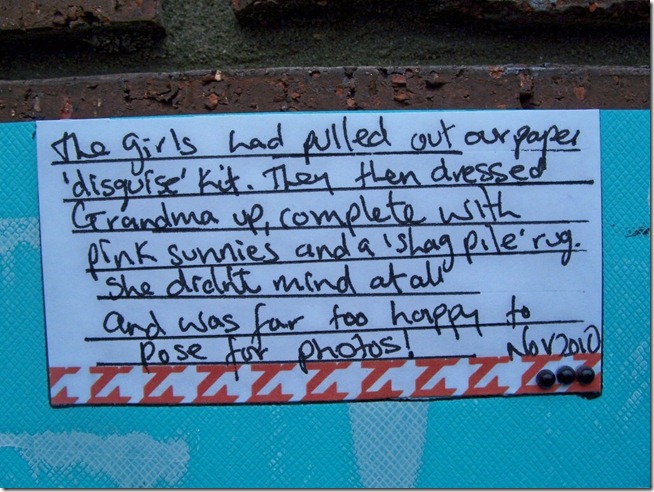 The girls had pulled out our paper
'disguise' kit. They then dressed
Grandma up, complete with
pink sunnies and a 'shag pile' rug.
She didn't mind at all
and was far too happy to
pose for photos! Nov 2010